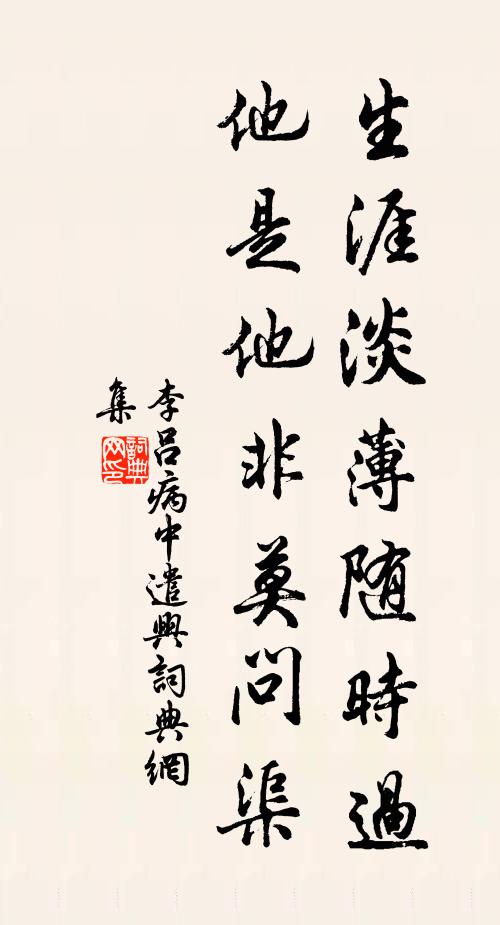 生涯淡薄随時過
他是他非莫問渠
李呂病中遣興詞典網
集
詞典网印